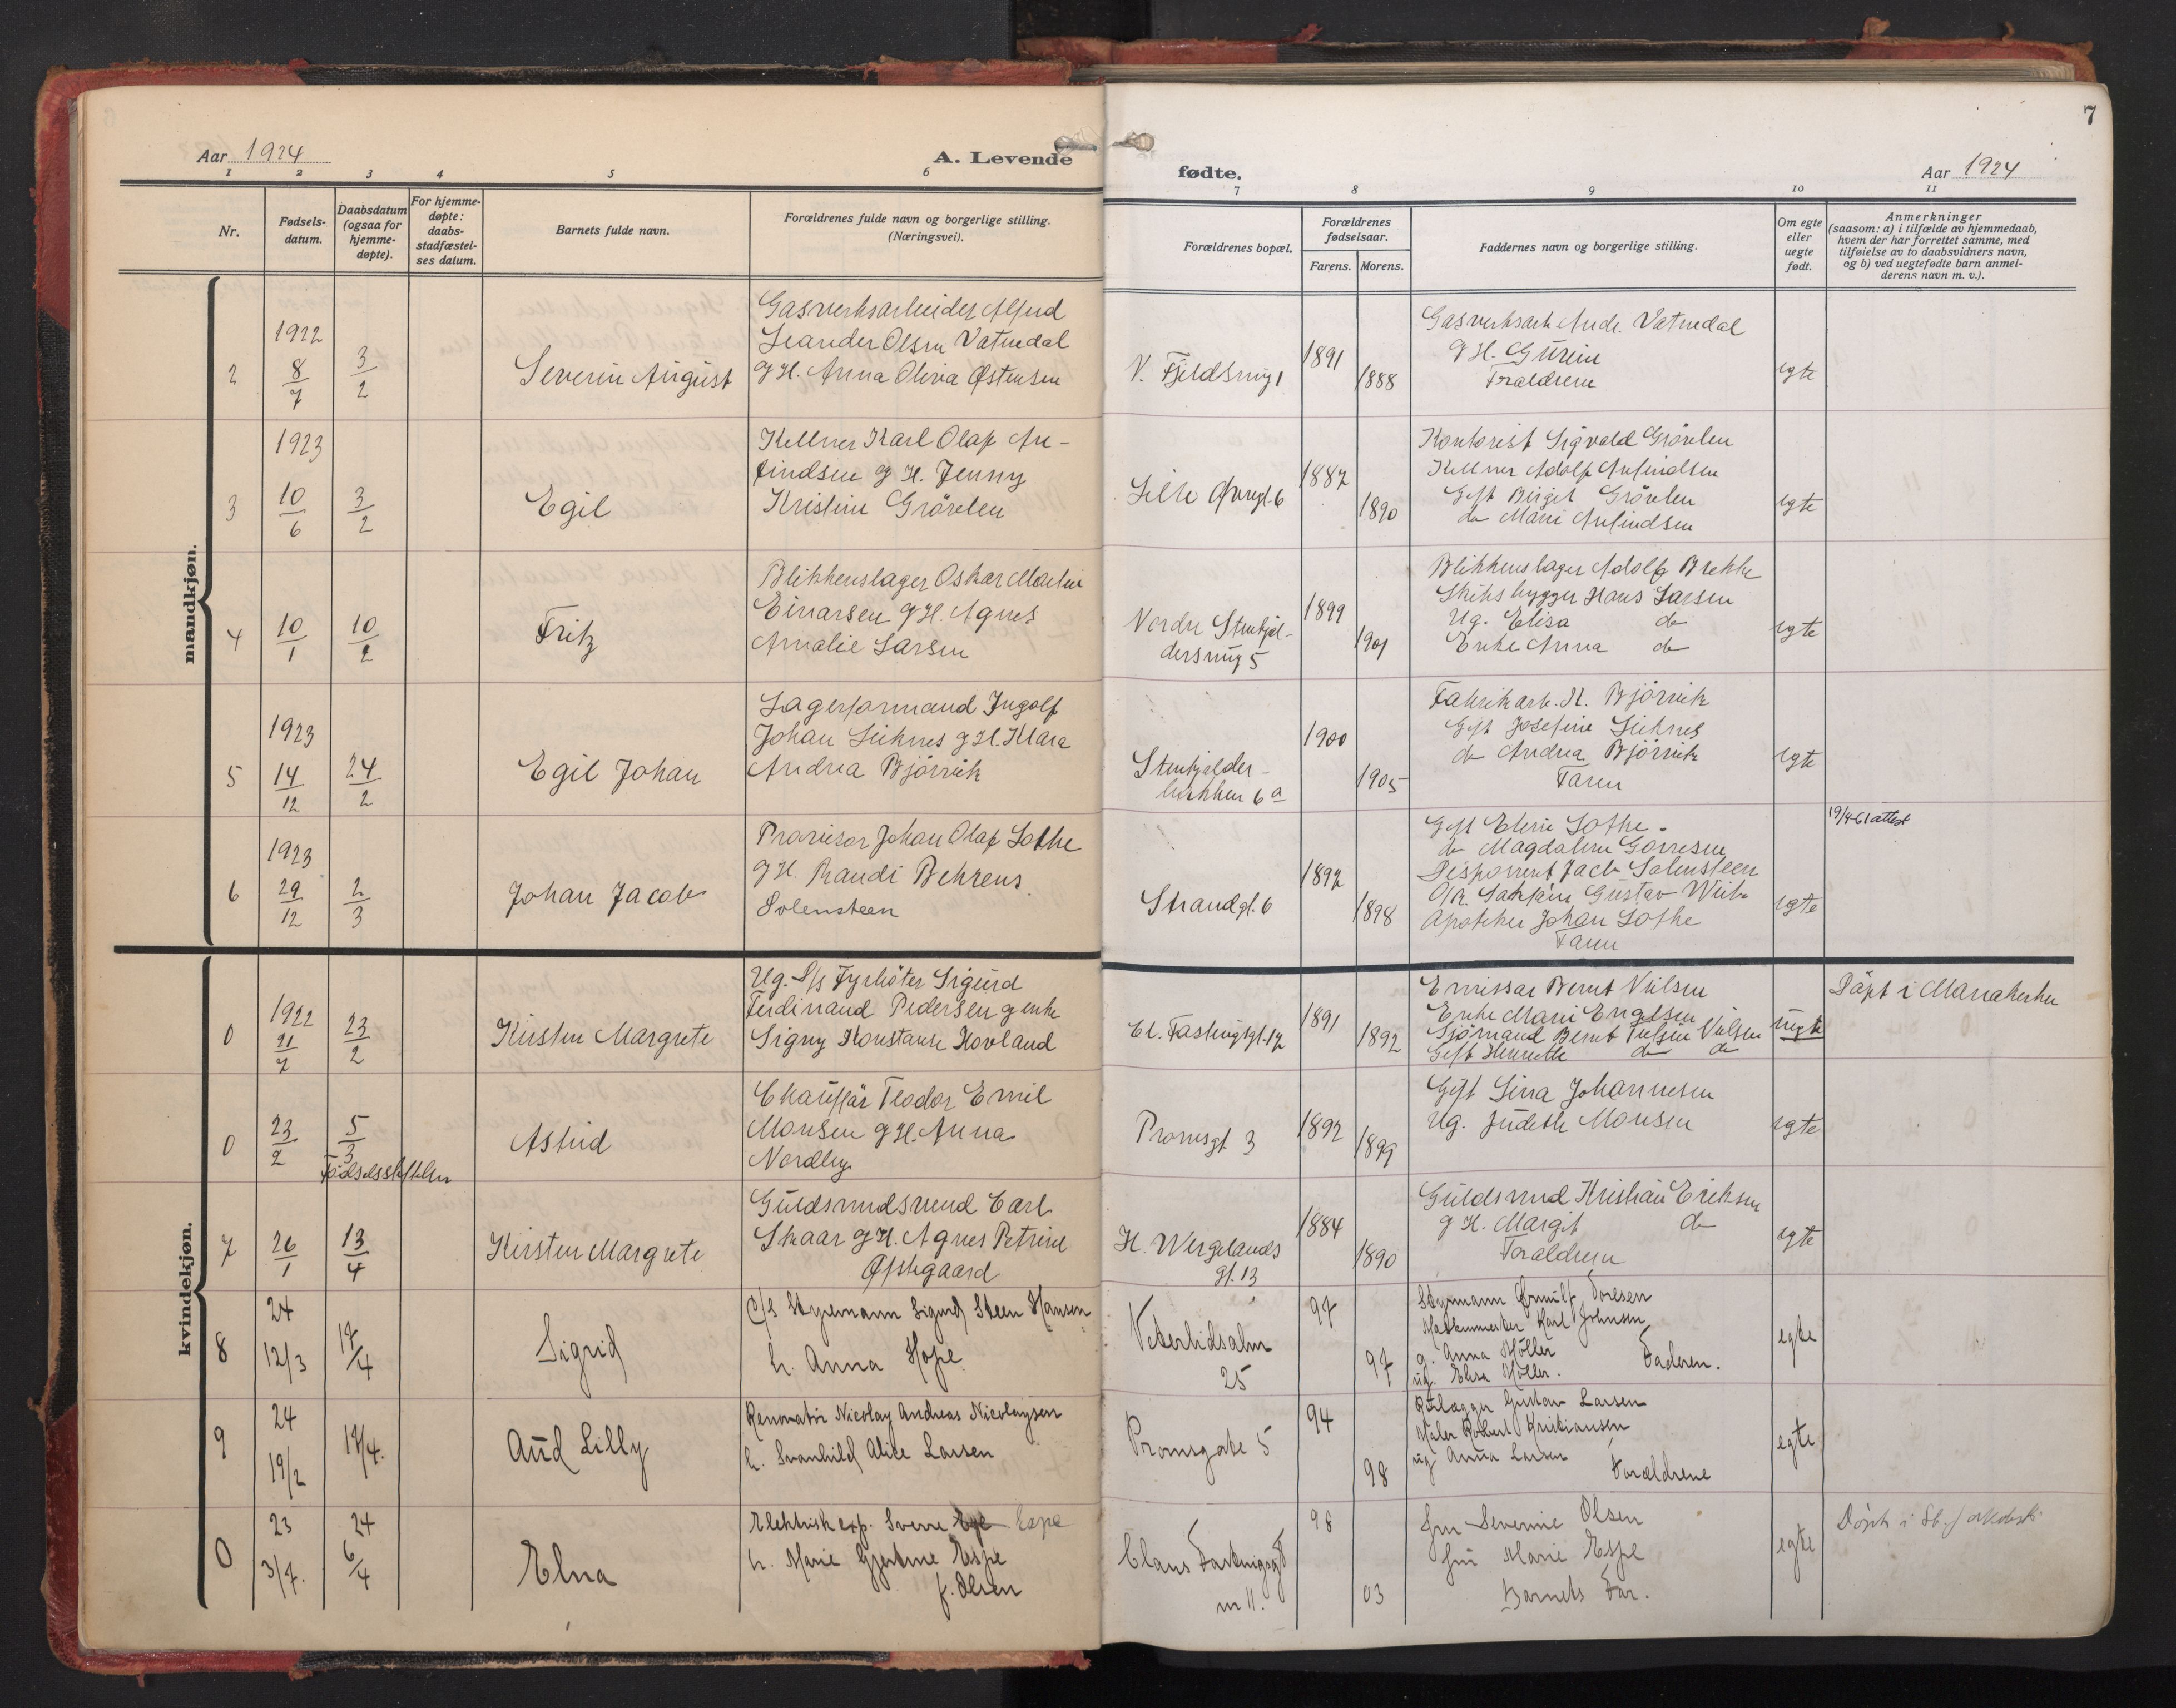 7
Aar 1924
A. Levende
fødte.
Aar 1924
1 2 3 4 5 6 7 8 9 10 11
Nr.
Fødsels-
datum.
Daabsdatum
(ogsaa for
hjemme-
døpte).
For hjemme-
døpte:
daabs-
stadfæstel-
ses datum.
Barnets fulde navn.
Forældrenes fulde navn og borgerlige stilling.
(Næringsvei).
Forældrenes bopæl.
Forældrenes
fødselsaar.
Farens. Morens.
Faddernes navn og borgerlige stilling.
Om egte
eller
uegte
født.
Anmerkninger
(saasom: a) i tilfælde av hjemmedaab,
hvem der har forrettet samme, med
tilføielse av to daabsvidners navn,
og b) ved uegtefødte barn anmel-
derens navn m. v.).
mandkjøn.
2
1922
8/7
3/2
Severin August
Gasverksarbeider Alfred
Leander Olsen Vatnedal
g H. Anna Olivia Østensen
V. Fjeldsmug 1
1891
1888
Gasverksarb Andr. Vatnedal
g H. Gurine
Forældrene
egte
3
1923
10/6
3/2
Egil
Kellner Karl Olaf An-
findsen g H. Jenny
Kristine Grövlen
Lille Øvregt. 6
1887
1890
Kontorist Sigvald Grövlen
Kellner Adolf Anfindsen
Gift Birgit Grövlen
do Marie Anfindsen
egte
4
10/1
10/2
Fritz
Blikkenslager Oskar Martin
Einarsen g H. Agnes
Amalie Larsen
Nordre Stenkjel-
dersmug 5
1899
1901
Blikkenslager Adolf Brekke
Skibsbygger Hans Larsen
Ug. Elisa do
Enke Anna do
egte
5
1923
14/12
24/2
Egil Johan
Lagerformand Ingolf
Johan Lieknes g H. Klara
Andrea Bjørnvik
Stenkjelder-
bakken 6 a
1900
1905
Fabrikarb. N. Bjørnvik
Gift Josefine Lieknes
do Andrea Bjørnvik
Faren
egte
6
1923
29/12
2/3
Johan Jacob
Provisor Johan Olaf Lothe
g H. Randi Behrens
Solensteen
Strandgt. 6
1892
1898
Gift Eline Lothe.
do Magdalene Gorresen
Disponent Jacb Solensteen
O/R. Sakfører Gustav Wiib
Apoteker Johan Lothe
Faren
egte
19/4-61 attest
kvindekjøn.
0
1922
21/7
23/2
Kirsten Margrete
Ug. S/s Fyrböter Sigurd
Ferdinand Pedersen g enke
Signy Konstanse Hovland
Cl. Fastingsgt. 12
1891
1892
Emissær Bernt Nilsen
Enke Marie Engelsen
Sjømand Bernt Nilsen
Gift Henriette do do
uegte
Døpt i Mariakirken
0
23/2
5/3
Fødselsstiftelsen
Astrid
Chauffør Teodor Emil
Monsen g H. Anna
Nordby
Promsgt 3
1892
1899
Gift Lina Johannesen
Ug. Judith Monsen
egte
7
26/1
13/4
Kirsten Margrete
Guldsmedsvend Carl
Skaar g H. Agnes Petrine
Opstegaard
H. Wergelands
gt. 13
1884
1890
Guldsmed Kristian Eriksen
g H. Margit do
Forældrene
egte
8
24
12/3
17/4
Sigrid
C/s Styrmann Sigurd Steen Hansen
h. Anna Hope
Veterlidsalm
25
97
97
Styrmann Ørnulf Toresen
Maskinmester Karl Johnsen
g. Anna Höller
ug. Elisa Höller. Faderen.
egte
9
24
19/2
19/4.
Aud Lilly
Renovatør Nicolay Andreas Nicolaysen
h. Svanhild Alice Larsen
Promsgate 5
94
98
Rørlægger Gustav Larsen
Maler Robert Kristiansen
ug Anna Larsen
Forældrene
egte
0
23
3/7.
24
6/4
Elna
Elektrisk exp. Sverre Espe
h. Marie Gjertine Espe
f. Olsen
Claus Fastingsgt
nr 11.
98
03
fru Severine Olsen
fru Marie Espe
Barnets Far.
egte
Døpt i St. Jakobsk.